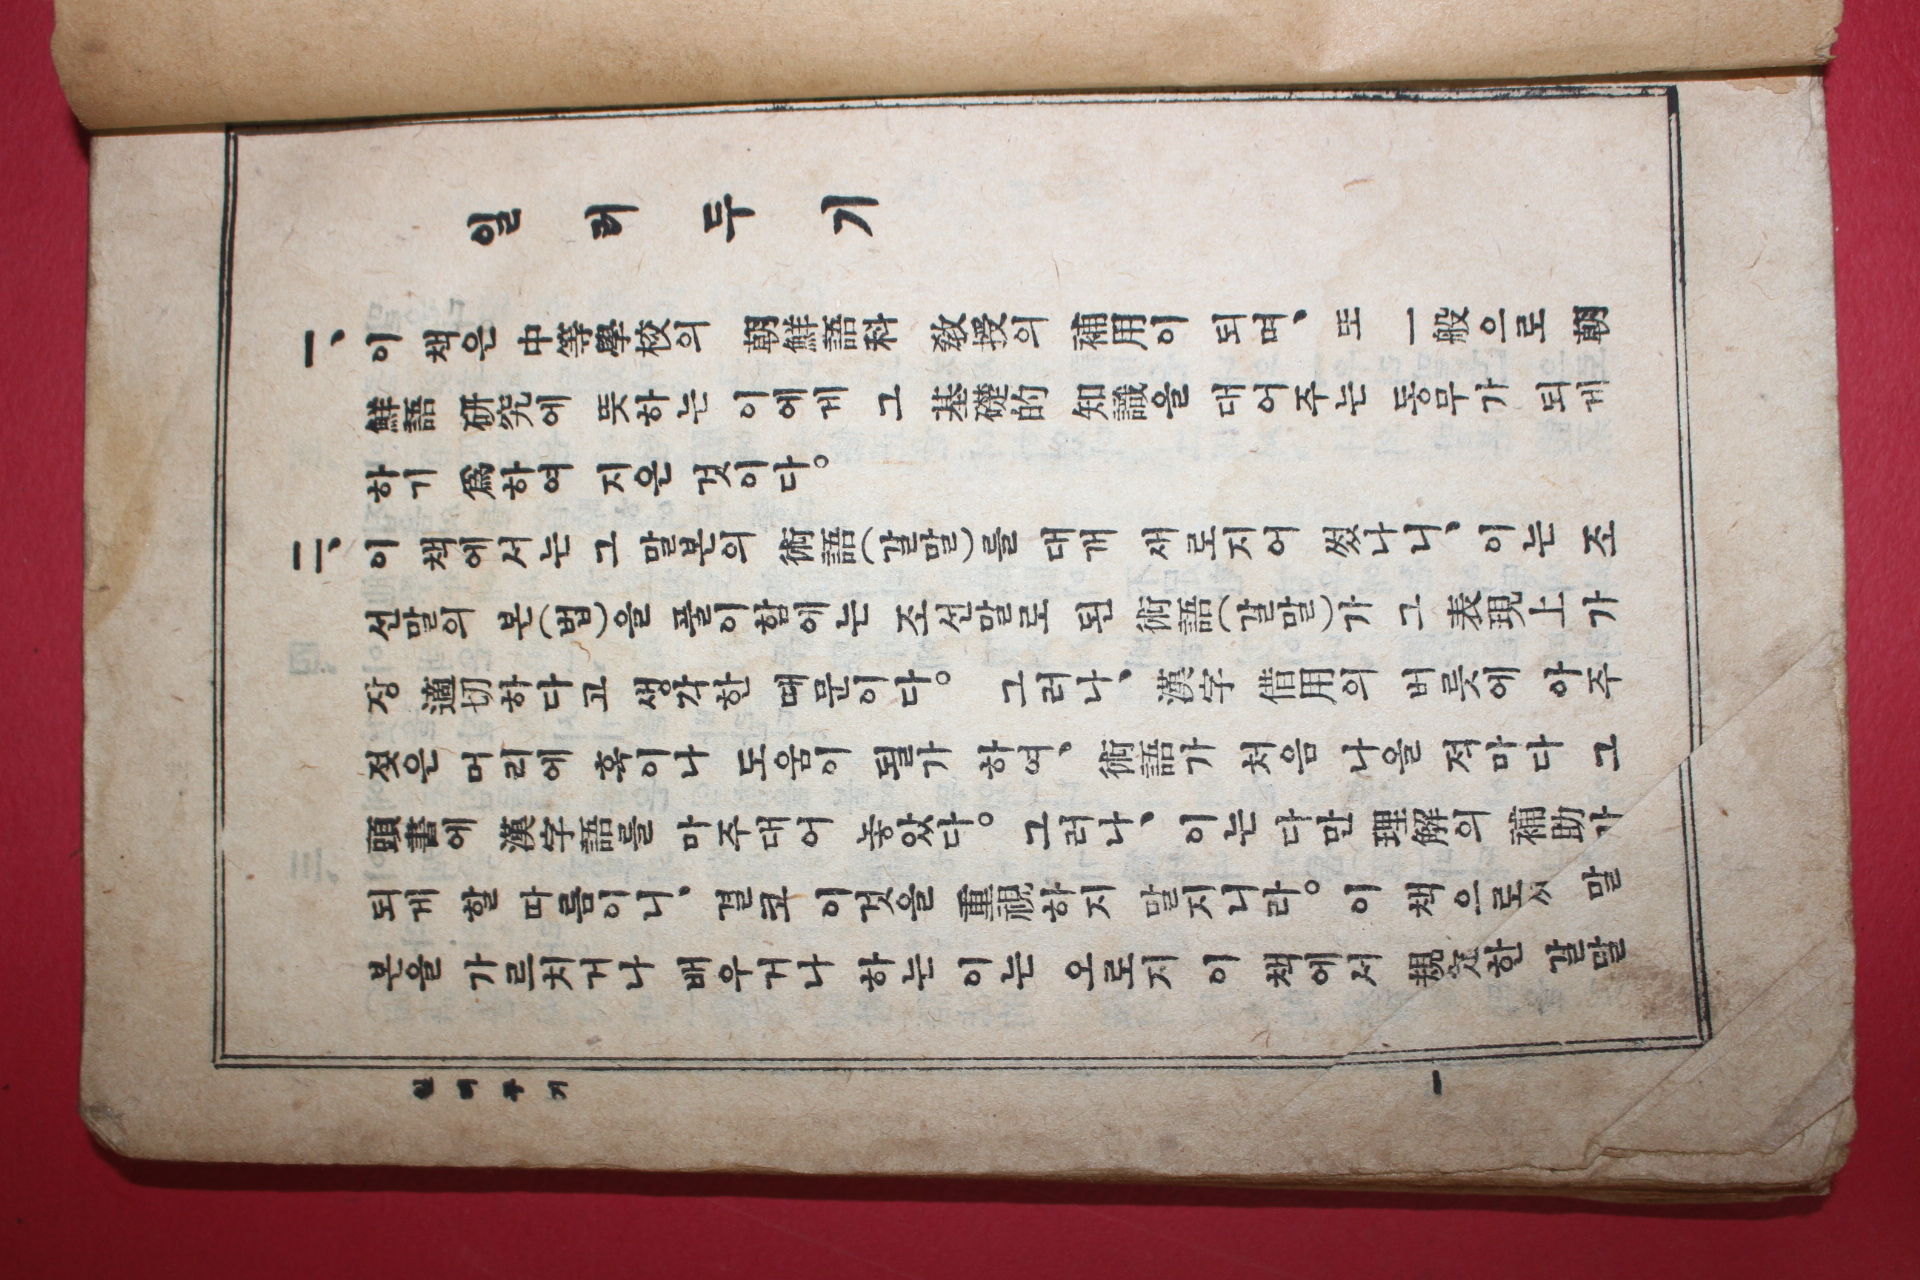 일러두기
一、이 책은 中等學校의 朝鮮語科 敎授의 補用이 되며、또 一般으로 朝
鮮語 硏究에 뜻하는 이에게 그 基礎的 知識을 대어주는 동무가 되게
하기 爲하여 지은 것이다。
二、이 책에서는 그 말본의 術語(갈말)를 대개 새로지어 썼나니、이는 조
선말의 본(법)을 풀이함에는 조선말로 된 術語(갈말)가 그 表現上 가
장 適切하다고 생각한 때문이다。 그러나、漢字 借用의 버릇에 아주
젖은 머리에 혹이나 도움이 될가 하여、術語가 처음 나올 적마다 그
頭書에 漢字語를 마주대어 놓았다。그러나、이는 다만 理解의 補助가
되게 할 따름이니、결코 이것을 重視하지 말지니라。이 책으로써 말
본을 가르치거나 배우거나 하는 이는 오로지 이 책에서 規定한 갈말
일러두기
一